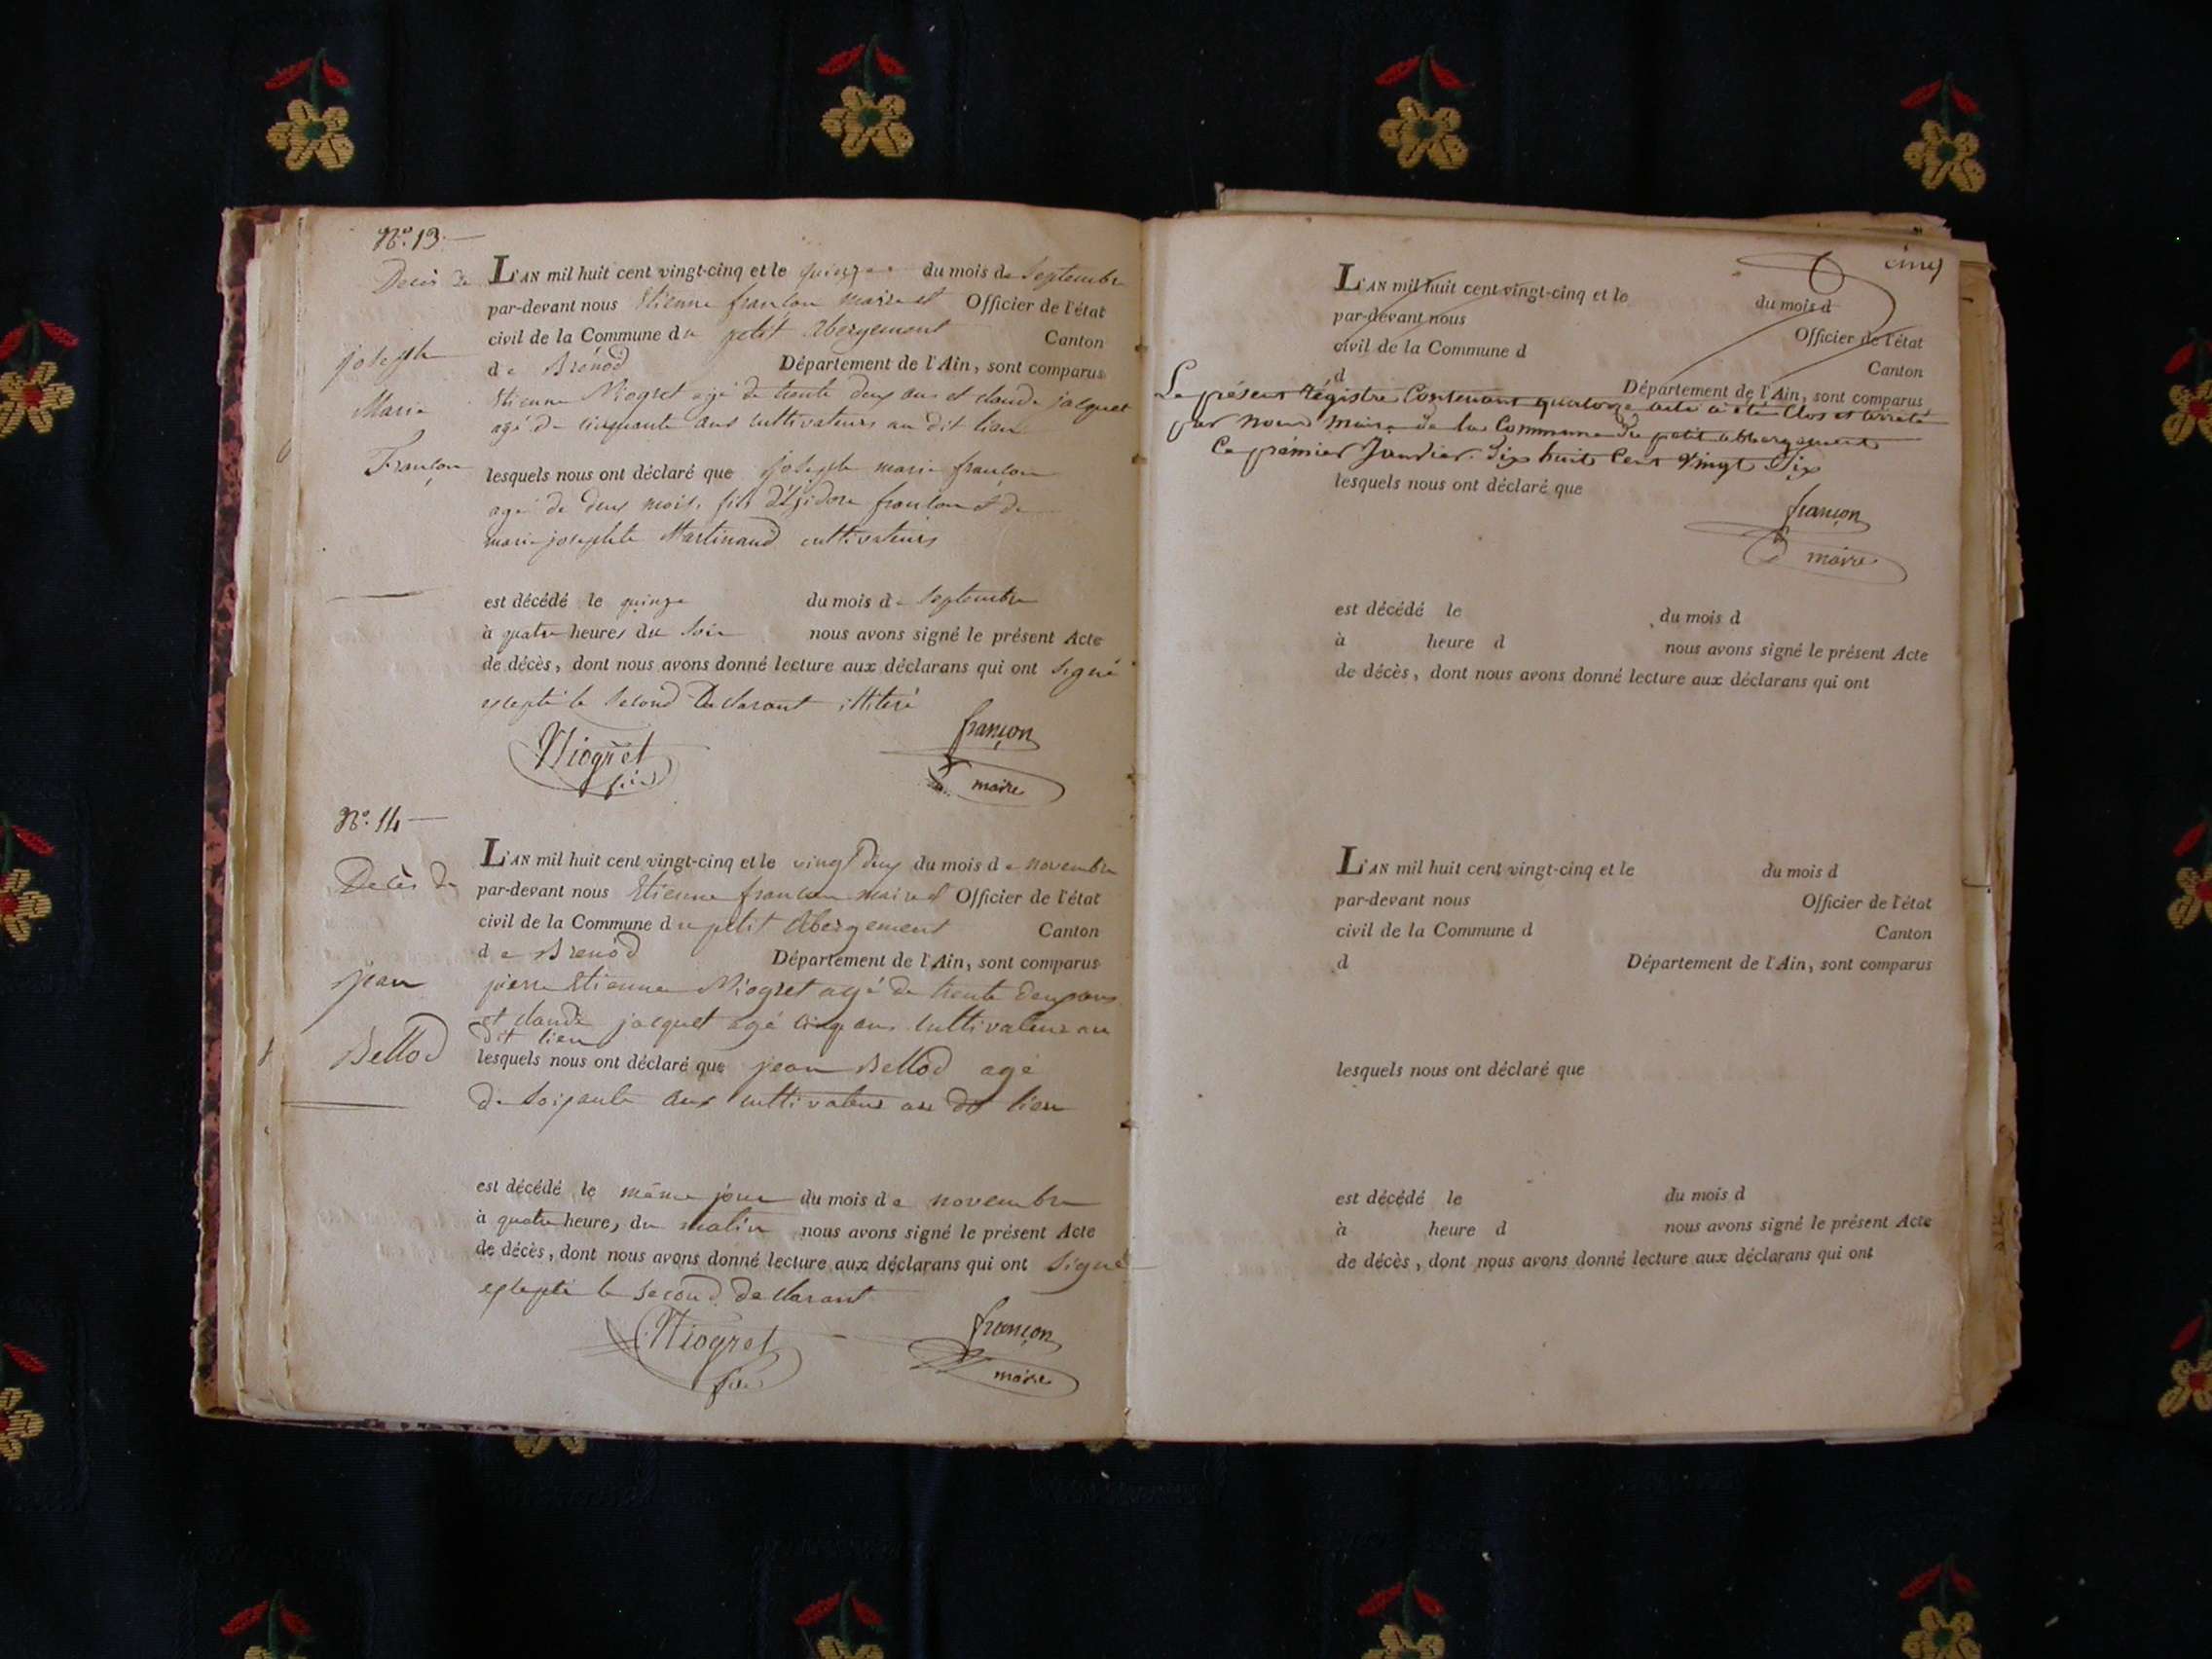 N.º 13.
Décès de
Joseph
Marie
Françon
L'AN mil huit cent vingt-cinq et le quinze du mois de Septembre
par-devant nous Etienne françon maire et Officier de l'état
civil de la Commune du petit Abergement Canton
de Brénod Département de l'Ain, sont comparus
Etienne Niogret agé de trente deux ans et claude jacquet
agé de cinquante ans cultivateurs au dit lieu
lesquels nous ont déclaré que joseph marie françon
agé de deux mois, fils d'Isidore françon et de
marie josephte Martinand cultivateurs
est décédé le quinze du mois de Septembre
à quatre heures du Soir nous avons signé le présent Acte
de décès, dont nous avons donné lecture aux déclarans qui ont signé
excepté le Second Declarant illiteré
Niogret
françon
maire
N.º 14
Décès de
jean
Bellod
L'AN mil huit cent vingt-cinq et le vingt deux du mois de novembre
par-devant nous Etienne françon maire et Officier de l'état
civil de la Commune du petit Abergement Canton
de Brénod Département de l'Ain, sont comparus
pierre Etienne Niogret agé de trente deux ans
et claude jacquet agé cinq ans Cultivateurs au
dit lieu
lesquels nous ont déclaré que jean Bellod agé
de Soixante ans cultivateur au dit lieu
est décédé le même jour du mois de novembre
à quatre heures du matin nous avons signé le présent Acte
de décès, dont nous avons donné lecture aux déclarans qui ont Signé
excepté le second declarant
Niogret
françon
maire
cinq
L'AN mil huit cent vingt-cinq et le du mois d
par-devant nous Officier de l'état
civil de la Commune d Canton
d Département de l'Ain, sont comparus
Le présent Régistre Contenant quatorze acte a été Clos et arreté
par nous maire de la Commune du petit abbergement
Ce prémier Janvier Dix huit Cent Vingt Six
lesquels nous ont déclaré que
françon
maire
est décédé le du mois d
à heure d nous avons signé le présent Acte
de décès, dont nous avons donné lecture aux déclarans qui ont
L'AN mil huit cent vingt-cinq et le du mois d
par-devant nous Officier de l'état
civil de la Commune d Canton
d Département de l'Ain, sont comparus
lesquels nous ont déclaré que
est décédé le du mois d
à heure d nous avons signé le présent Acte
de décès, dont nous avons donné lecture aux déclarans qui ont